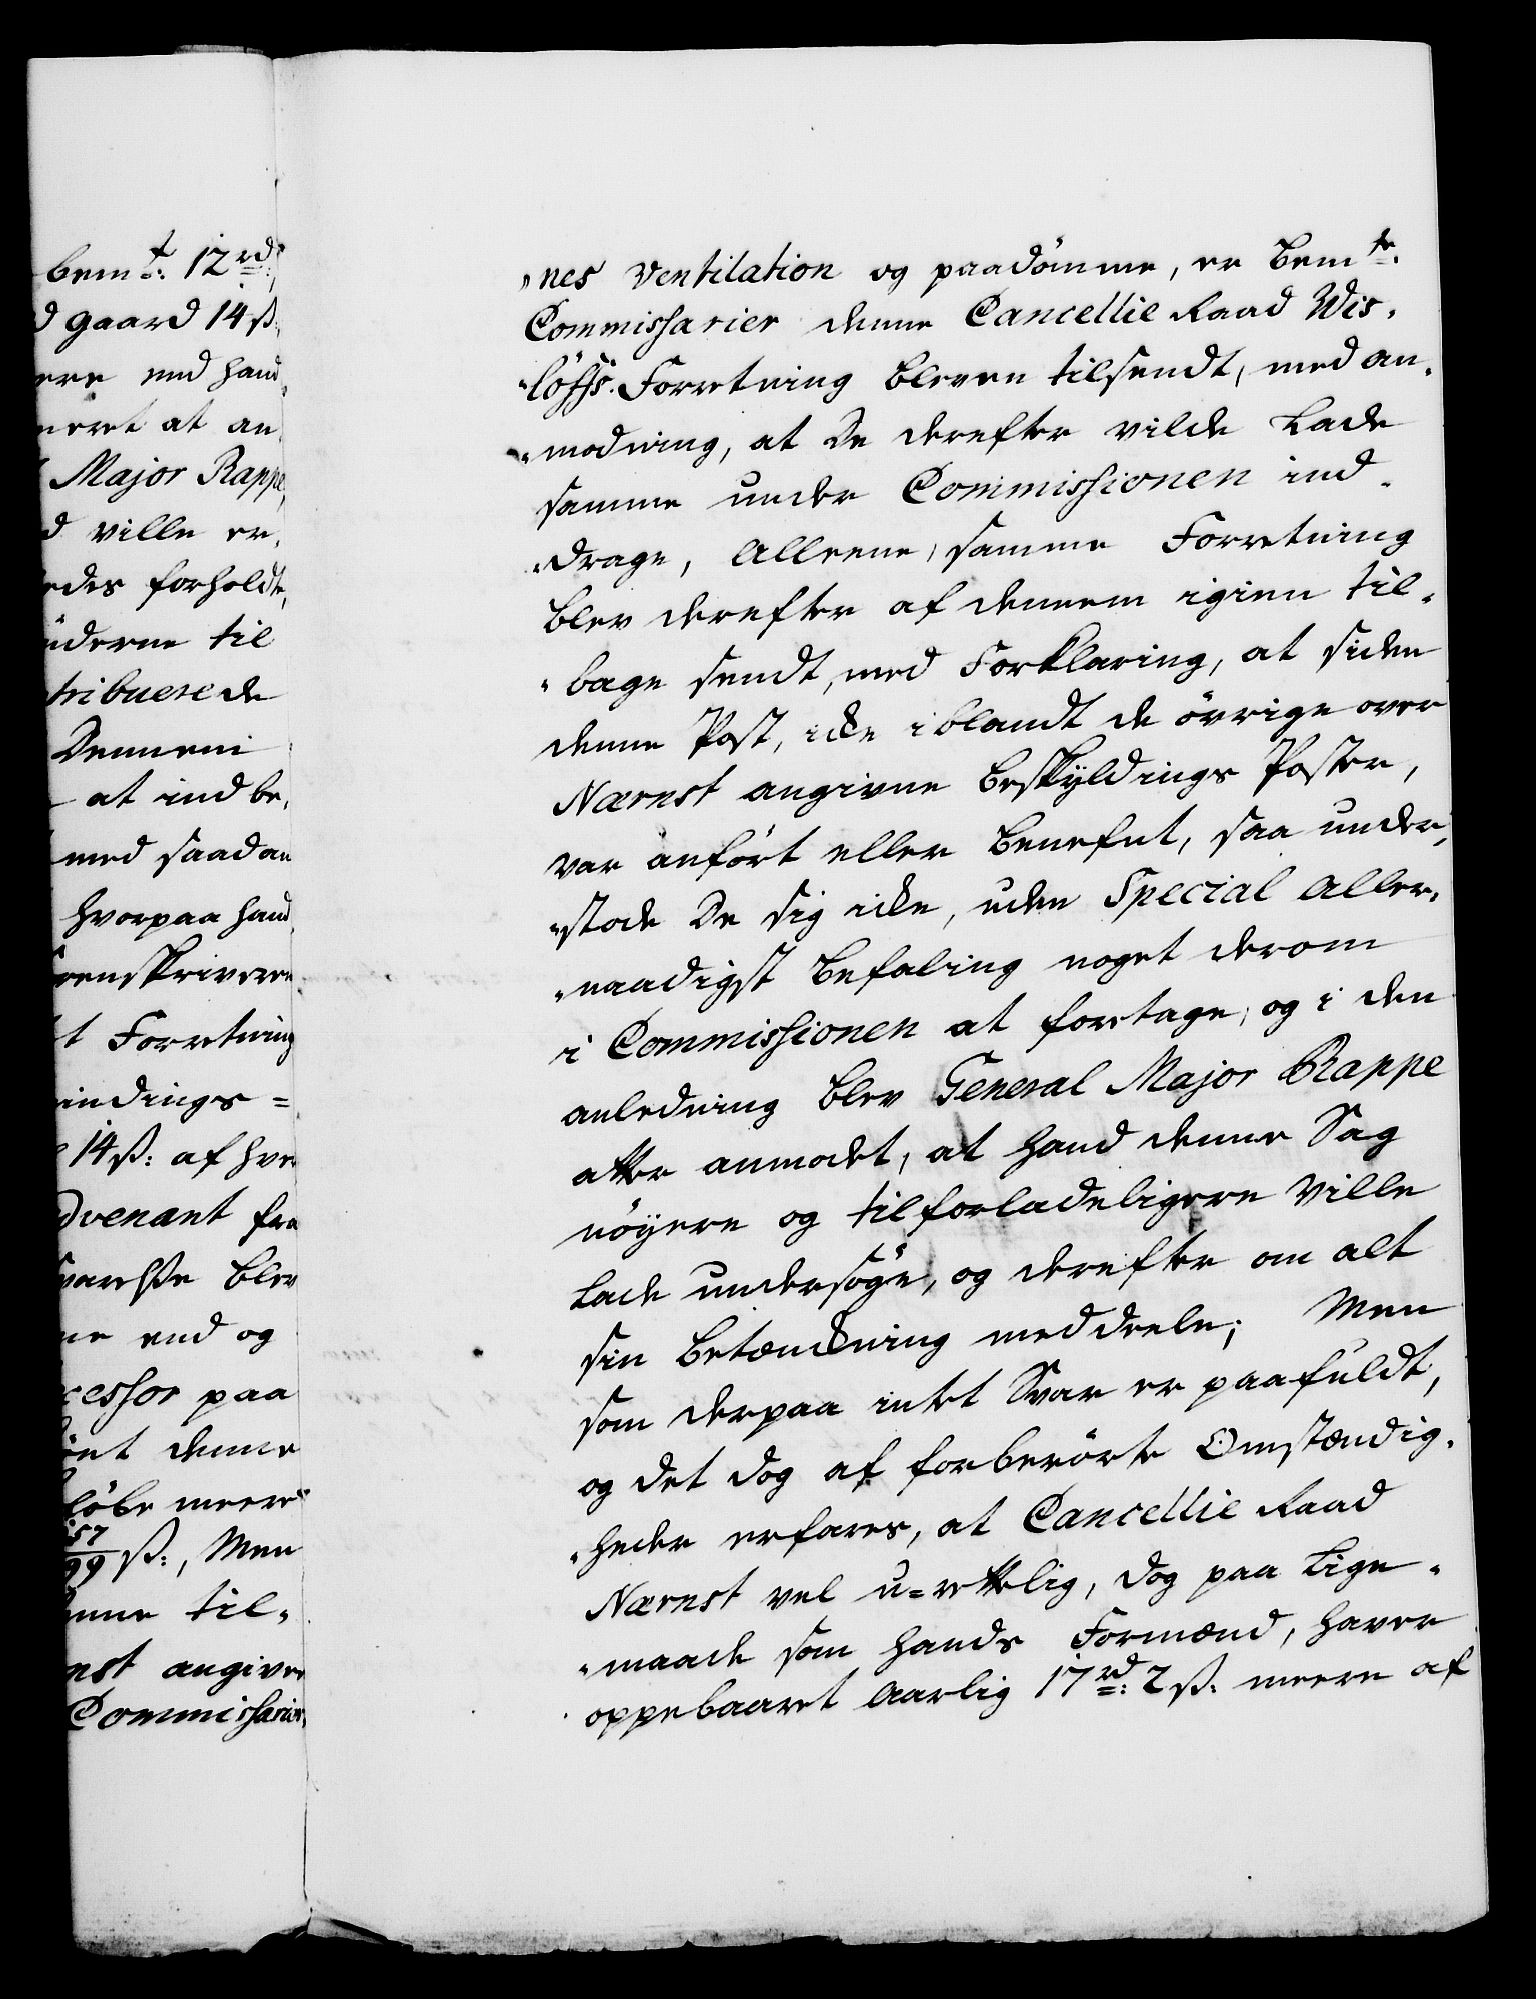 bemt: 12rd:
d gaard 14ß:
ere end hand
neret at an
Major Rappe,
d ville er,
edes forholdt,
üderne til
tribuere de
Dennem
at indbe,
med saadan
hvorpaa hand
renskriveren
t Forretning
indings=
14ß: af hver
dvenant fra
svarelse blev
ne end og
cessor paa
denne
löbe meere
57
99 ß:, Men
nne til-
nst angiven
Commissarier
"nes Ventilation og paadömme, er bemte:
Commissarier denne Cancellie Raad Wis-
"löffs. Forretning bleven tilsendt, med an-
"modning, at De derefter vilde Lade
samme under Commissionen ind-
"drage, Alleene, samme Forretning
blev derefter af dennem igien til-
"bage sendt, med Forklaring, at siden
denne Post, icke iblandt de övrige over
Nærnst angivne Beskyldings Poster,
var anfört eller benefnt, saa under-
"stode De sig icke, uden Special Aller-
"naadigst Befaling noget derom
i Commissionen at foretage, og i den
anledning blev General Major Rappe
atter anmodet, at hand denne Sag
nöyere og tilforladeligere Ville
Lade undersöge, og derefter om alt
sin Betænckning meddeele; Men
som derpaa intet Svar er paafuldt,
og det dog af forberörte Omstændig-
"heder erfares, at Cancellie Raad
Nærnst vel u=rettelig, dog paa Lige-
"maade som hands Formænd, haver
oppebaaret Aarlig 17rd: 2ß: meere af